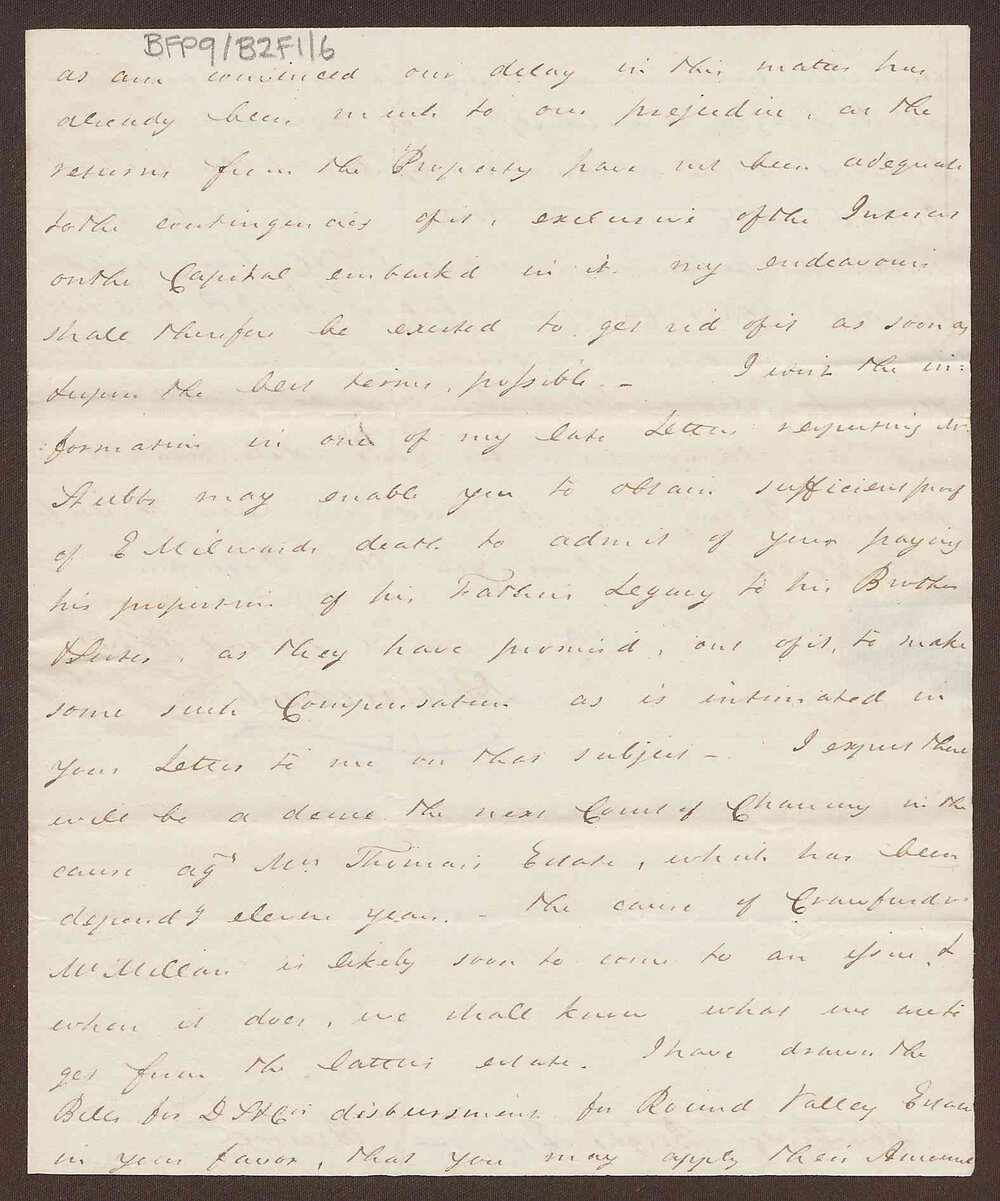 BFP9/B2F1/6
as am convinced our delay in this matter has
already been much to our prejudice, as the
returns from the Property have not been adequate
to the contingencies of it, exclusive of the Interest
on the Capital embark'd in it. my endeavours
shall therefore be exerted to get rid of it as soon as
& upon the best terms possible. — I wish the in:
:formation in one of my late Letters respecting Mr.
Stubbs may enable you to obtain sufficient proof
of E Milwards death to admit of your paying
his proportion of his Fathers Legacy to his Brother
& Sister, as they have promis'd, out of it, to make
some such Compensation as is intimated in
your Letter to me on that subject — I expect there
will be a decree the next Court of Chancery in the
cause agt Mrs. Thomas's Estate, which has been
depends eleven years. — the cause of Crawfurd vs
McMillan is likely soon to come to an issue, &
when it does, we shall know what we are to
get from the latters estate. I have drawn the
Bills for D St & Cos disbursements for Round Valley Estate
in your favor, that you may apply their Amount